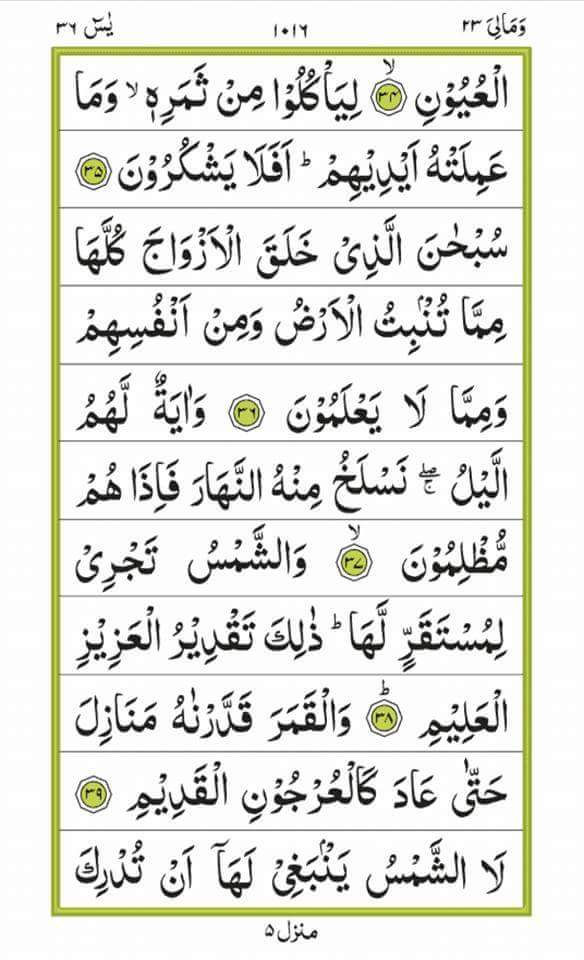 وَمَالِیَ ۲۳ ۱۰۱۶ یٰسٓ ۳۶
الْعُیُوْنِ ۙ﴿۳۴﴾ لِیَاْكُلُوْا مِنْ ثَمَرِهٖ ۙ وَمَا
عَمِلَتْهُ اَیْدِیْهِمْ ؕ اَفَلَا یَشْكُرُوْنَ ﴿۳۵﴾
سُبْحٰنَ الَّذِیْ خَلَقَ الْاَزْوَاجَ كُلَّهَا
مِمَّا تُنْۢبِتُ الْاَرْضُ وَمِنْ اَنْفُسِهِمْ
وَمِمَّا لَا یَعْلَمُوْنَ ﴿۳۶﴾ وَاٰیَةٌ لَّهُمُ
الَّیْلُ ۖۚ نَسْلَخُ مِنْهُ النَّهَارَ فَاِذَا هُمْ
مُّظْلِمُوْنَ ۙ﴿۳۷﴾ وَالشَّمْسُ تَجْرِیْ
لِمُسْتَقَرٍّ لَّهَا ؕ ذٰلِكَ تَقْدِیْرُ الْعَزِیْزِ
الْعَلِیْمِ ؕ﴿۳۸﴾ وَالْقَمَرَ قَدَّرْنٰهُ مَنَازِلَ
حَتّٰی عَادَ كَالْعُرْجُوْنِ الْقَدِیْمِ ﴿۳۹﴾
لَا الشَّمْسُ یَنْۢبَغِیْ لَهَاۤ اَنْ تُدْرِكَ
منزل ۵